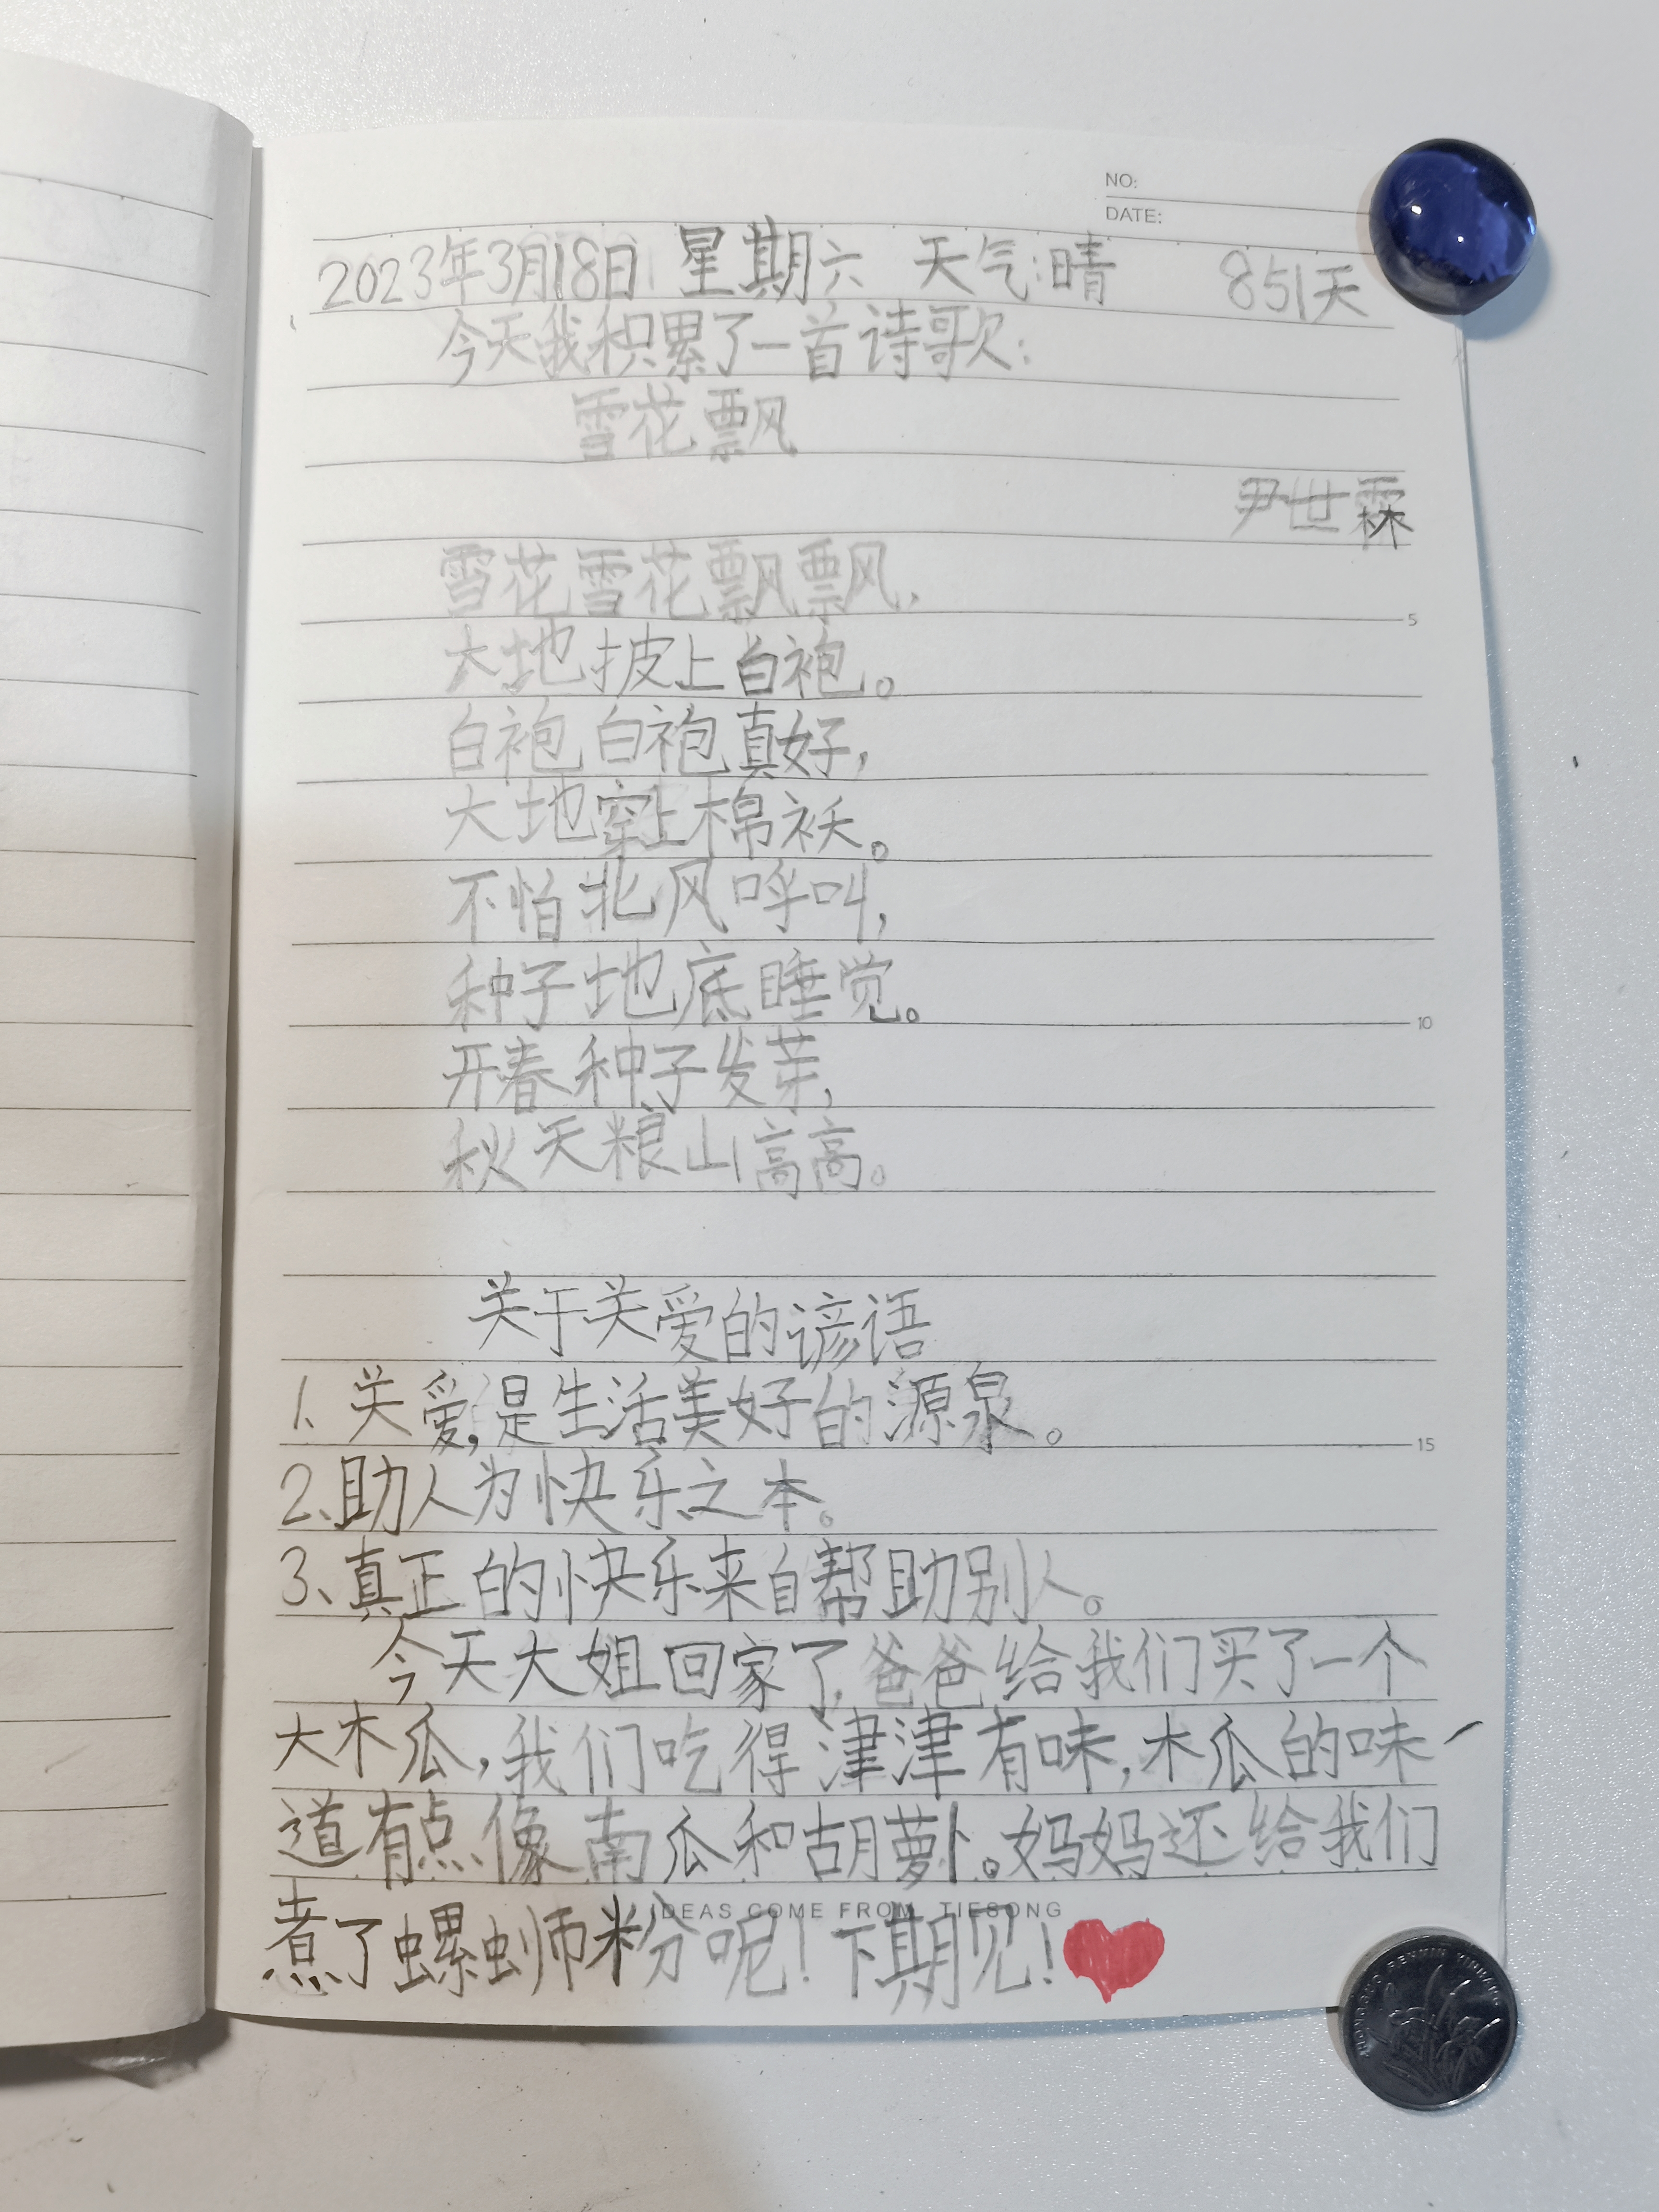 NO:
DATE:
2023年3月18日 星期六 天气:晴 851天
今天我积累了一首诗歌:
雪花飘
尹世霖
雪花雪花飘飘,
大地披上白袍。
白袍白袍真好,
大地穿上棉袄。
不怕北风呼叫,
种子地底睡觉。
开春种子发芽,
秋天粮山高高。
关于关爱的谚语
1、关爱,是生活美好的源泉。
2、助人为快乐之本。
3、真正的快乐来自帮助别人。
今天大姐回家了,爸爸给我们买了一个
大木瓜,我们吃得津津有味,木瓜的味
道有点像南瓜和胡萝卜。妈妈还给我们
煮了螺蛳粉呢!下期见!
IDEAS COME FROM TIESONG
5
10
15
ZHONGGUO RENMIN YINHANG